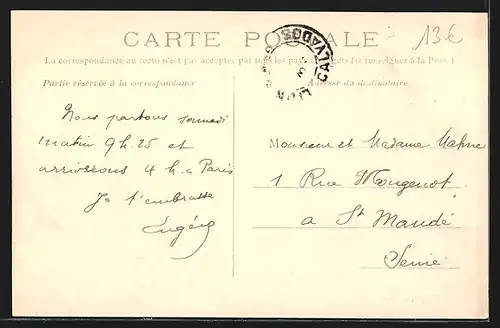 CARTE POSTALE
13€
La correspondance au recto n'est pas acceptée par tous les pays étrangers (se renseigner à la Poste)
Partie réservée à la correspondance
Adresse du destinataire
CALVADOS
Nous partons samedi
matin 9h.25 et
arriverons 4 h. a Paris
Je t'embrasse
Eugénie
Monsieur et Madame
1 Rue Mongenot
a St Mandé
Seine